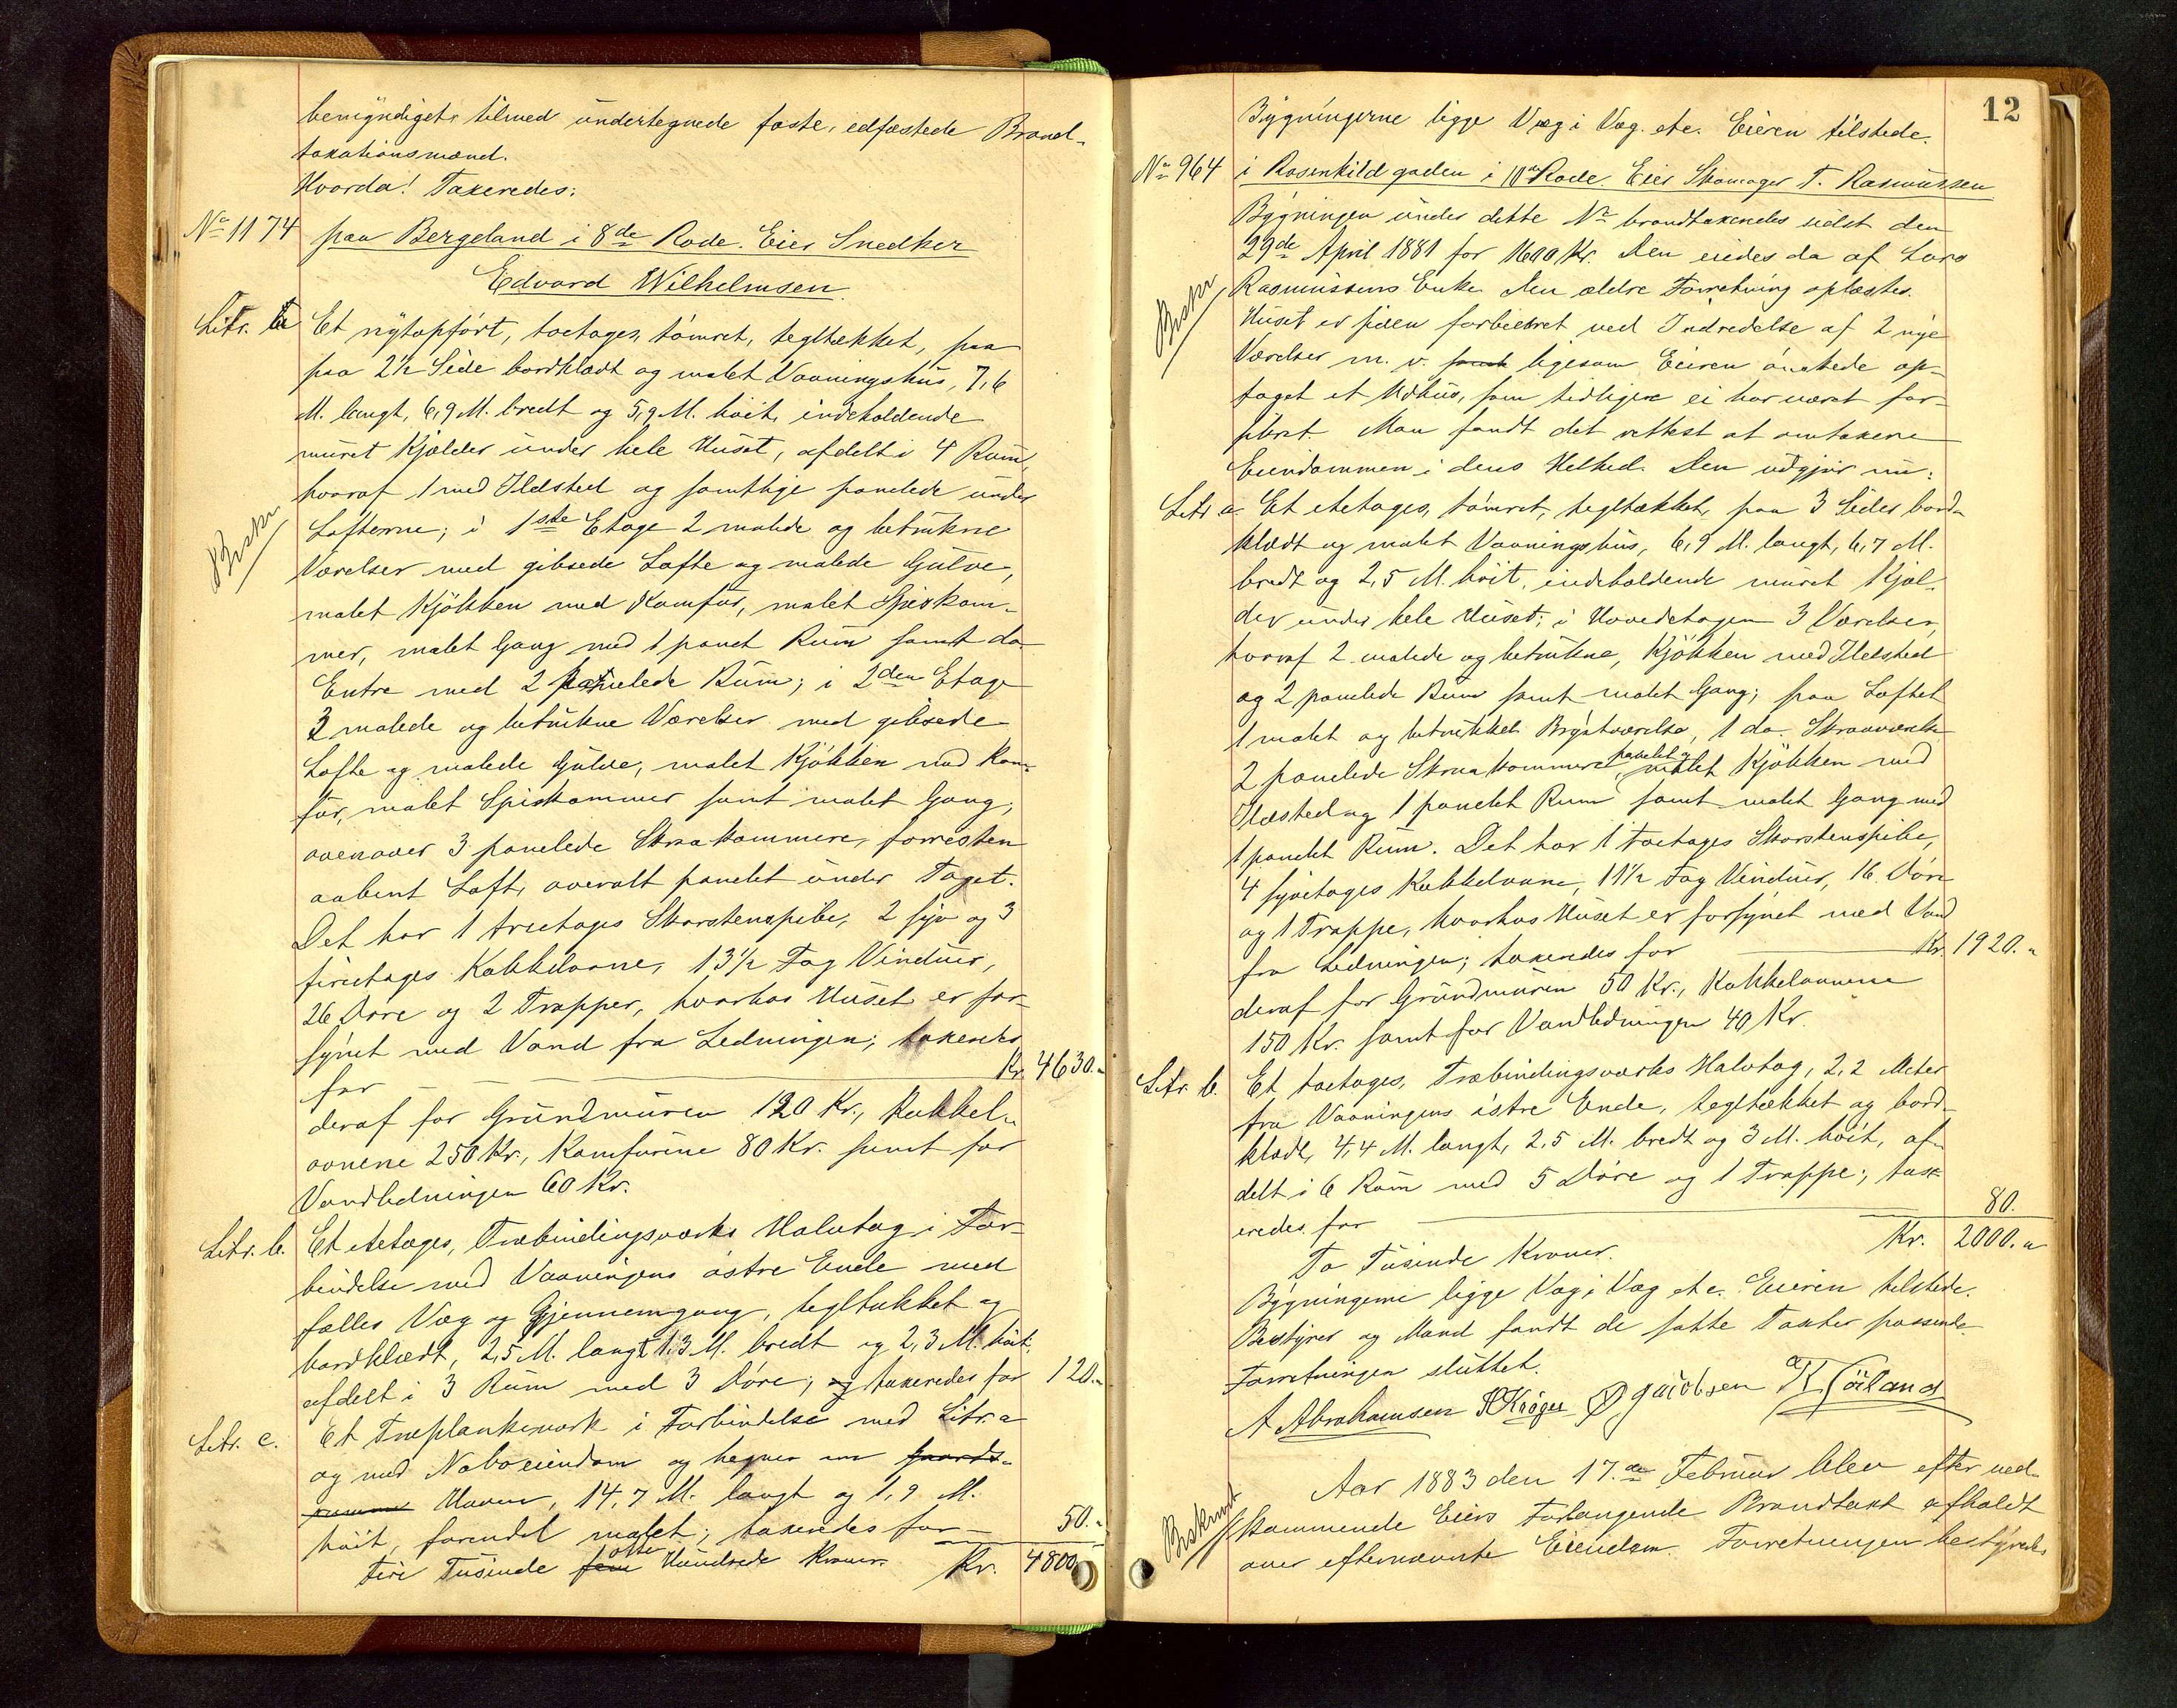 benyndiget, tilmed undertegnede faste, edfæstede Brand-
taxationsmænd.
Hvorda! Taxeredes:
No 1174 paa Bergeland i 8de Rode. Eier Snedker
Edvard Wilhelmsen.
Litr. a Et nýtopført, toetages, tømret, tegltækket, paa
paa 2½ Side bordklædt og malet Vaaningshus, 7,6
M. langt, 6,9 M. bredt og 5,9 M. høit, indeholdende
muret Kjælder under hele Huset, afdelt i 4 Rum,
hvoraf 1 med Ildsted og samtlige panelede under
Lofterne; i 1ste Etage 2 malede og betrukne
Beskr.
Værelser med gibsede Lofte og malede Gulve,
malet Kjøkken med Komfur, malet Spiskam-
mer, malet Gang med 1 panelt Rum samt do
Entre med 2 panelede Rum; i 2den Etage
3 malede og betrukne Værelser med gibsede
Lofte og malede Gulve, malet Kjøkken med Kom-
fur, malet Spiskammer samt malet Gang,
ovenover 3 panelede Skraakammere, forresten
aabent Loft, overalt panelet under Taget.
Det har 1 treetages Skorstenspibe, 2 syv og 3
fireetages Kakkelovne, 13½ Fag Vinduer,
26 Døre og 2 Trapper, hvorhos Huset er for-
synet med Vand fra Ledningen; taxeredes
for Kr. 4630.-
deraf for Grundmuren 120 Kr., Kakkel-
ovnene 250 Kr., Komfurene 80 Kr. samt for
Vandledningen 60 Kr.
Litr. b. Et etetages, Træbindingsværks Halvtag i For-
bindelse med Vaaningens østre Ende med
fælles Væg og Gjennemgang, tegltækket og
bordklædt, 2,5 M. langt 1,3 M. bredt og 2,3 M. høit,
afdelt i 3 Rum med 3 Døre; og taxeredes for 120.-
Litr. c. Et Træplankeværk i Forbindelse med Litr. a
og med Naboeiendom og hegner om Gaards-
rummet Haven, 14,7 M. langt og 1,9 M.
høit, forendel malet; taxeredes for 50.-
Fire Tusinde fem otte Hundrede Kroner. Kr. 4800
12
Býgningerne ligge Væg i Væg. etc. Eieren tilstede.
No 964 i Rosenkildgaden i 10de Rode. Eier Skomager T. Rasmussen
Býgningen under dette No brandtaxeredes sidst den
29de April 1881 for 1600 Kr. Den eiedes da af Lars
Rasmussens Enke. Den ældre Forretning oplæstes.
Beskr.
Huset er siden forbedret ved Indredelse af 2 nye
Værelser m. v. samt ligesom Eieren ønskede op-
taget et Udhus, som tidligere ei har været for-
sikret. Man fandt det rettest at omtaxere
Eiendommen i dens Helhed. Den udgjør nu:
Litr a. Et etetages, tømret, tegltækket, paa 3 Sider bord-
klædt og malet Vaaningshus, 6,9 M. langt, 6,7 M.
bredt og 2,5 M. høit, indeholdende muret Kjæl-
der under hele Huset; i Hovedetagen 3 Værelser,
hvoraf 2 malede og betrukne, Kjøkken med Ildsted
og 2 panelede Rum samt malet Gang; paa Loftet
1 malet og betrukket Brýstværelse, 1 do. Skraaværelse
2 panelede Skraakammere, panelet og malet Kjøkken med
Ildsted og 1 panelet Rum samt malet Gang med
1 panelet Rum. Det har 1 toetages Skorstenspibe,
4 syvetages Kakkelovne, 11½ Fag Vinduer, 16 Døre
og 1 Trappe, hvorhos Huset er forsýnet med Vand
fra Ledningen; taxeredes for Kr. 1920.-
deraf for Grundmuren 50 Kr., Kakkelovnene
150 Kr. samt for Vandledningen 40 Kr.
Litr. b. Et toetages, Træbindingsværks Halvtag, 2,2 Meter
fra Vaaningens østre Ende, tegltækket og bord-
klædt, 4,4 M. langt, 2,5 M. bredt og 3 M. høit, af-
delt i 6 Rum med 5 Døre og 1 Trappe; tax-
eredes for 80.
To Tusinde Kroner. Kr. 2000.-
Býgningerne ligge Væg i Væg etc. Eieren tilstede.
Bestýrer og Mænd fandt de satte Taxter passende
Forretningen sluttet.
A Abrahamsen H Krøger Ø Jacobsen K Tørland
Aar 1883 den 17.de Februar blev efter ved-
Beskrevet
kommende Eiers Forlangende Brandtaxt afholdt
over efternævnte Eiendom. Forretningen bestýredes